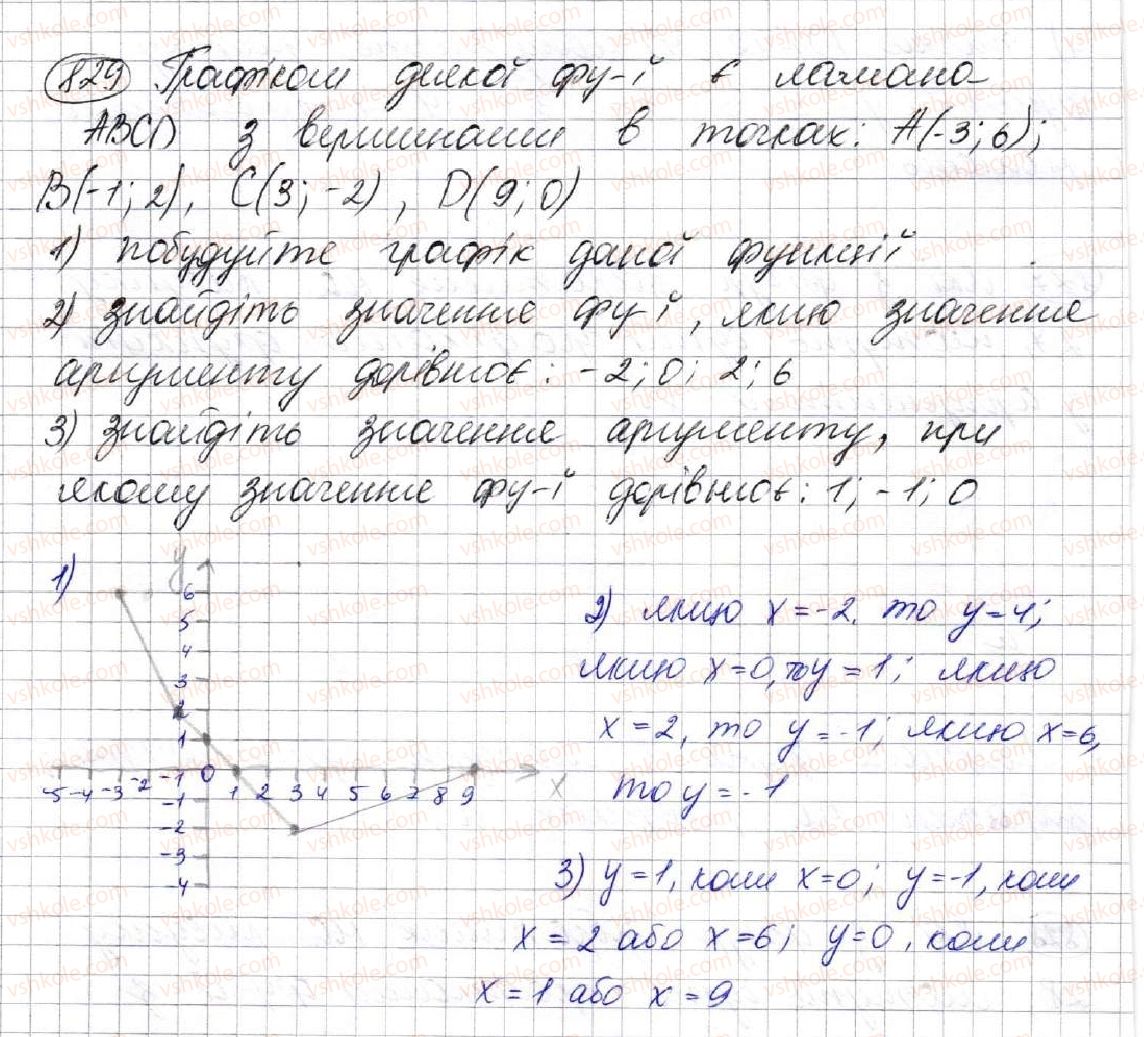 829 Графіком деякої фу-ї є ламана
ABCD з вершинами в точках: A(-3; 6);
B(-1; 2), C(3; -2), D(9; 0)
1) побудуйте графік даної функції
2) знайдіть значення фу-ї, якщо значення
аргументу дорівнює: -2; 0; 2; 6
3) знайдіть значення аргументу, при
якому значення фу-ї дорівнює: 1; -1; 0
1)
y
6
5
4
3
2
1
-5 -4 -3 -2 -1 0 1 2 3 4 5 6 7 8 9 x
-1
-2
-3
-4
2) якщо x = -2, то y = 4;
якщо x = 0, то y = 1; якщо
x = 2, то y = -1; якщо x = 6,
то y = -1
3) y = 1, коли x = 0; y = -1, коли
x = 2 або x = 6; y = 0, коли
x = 1 або x = 9